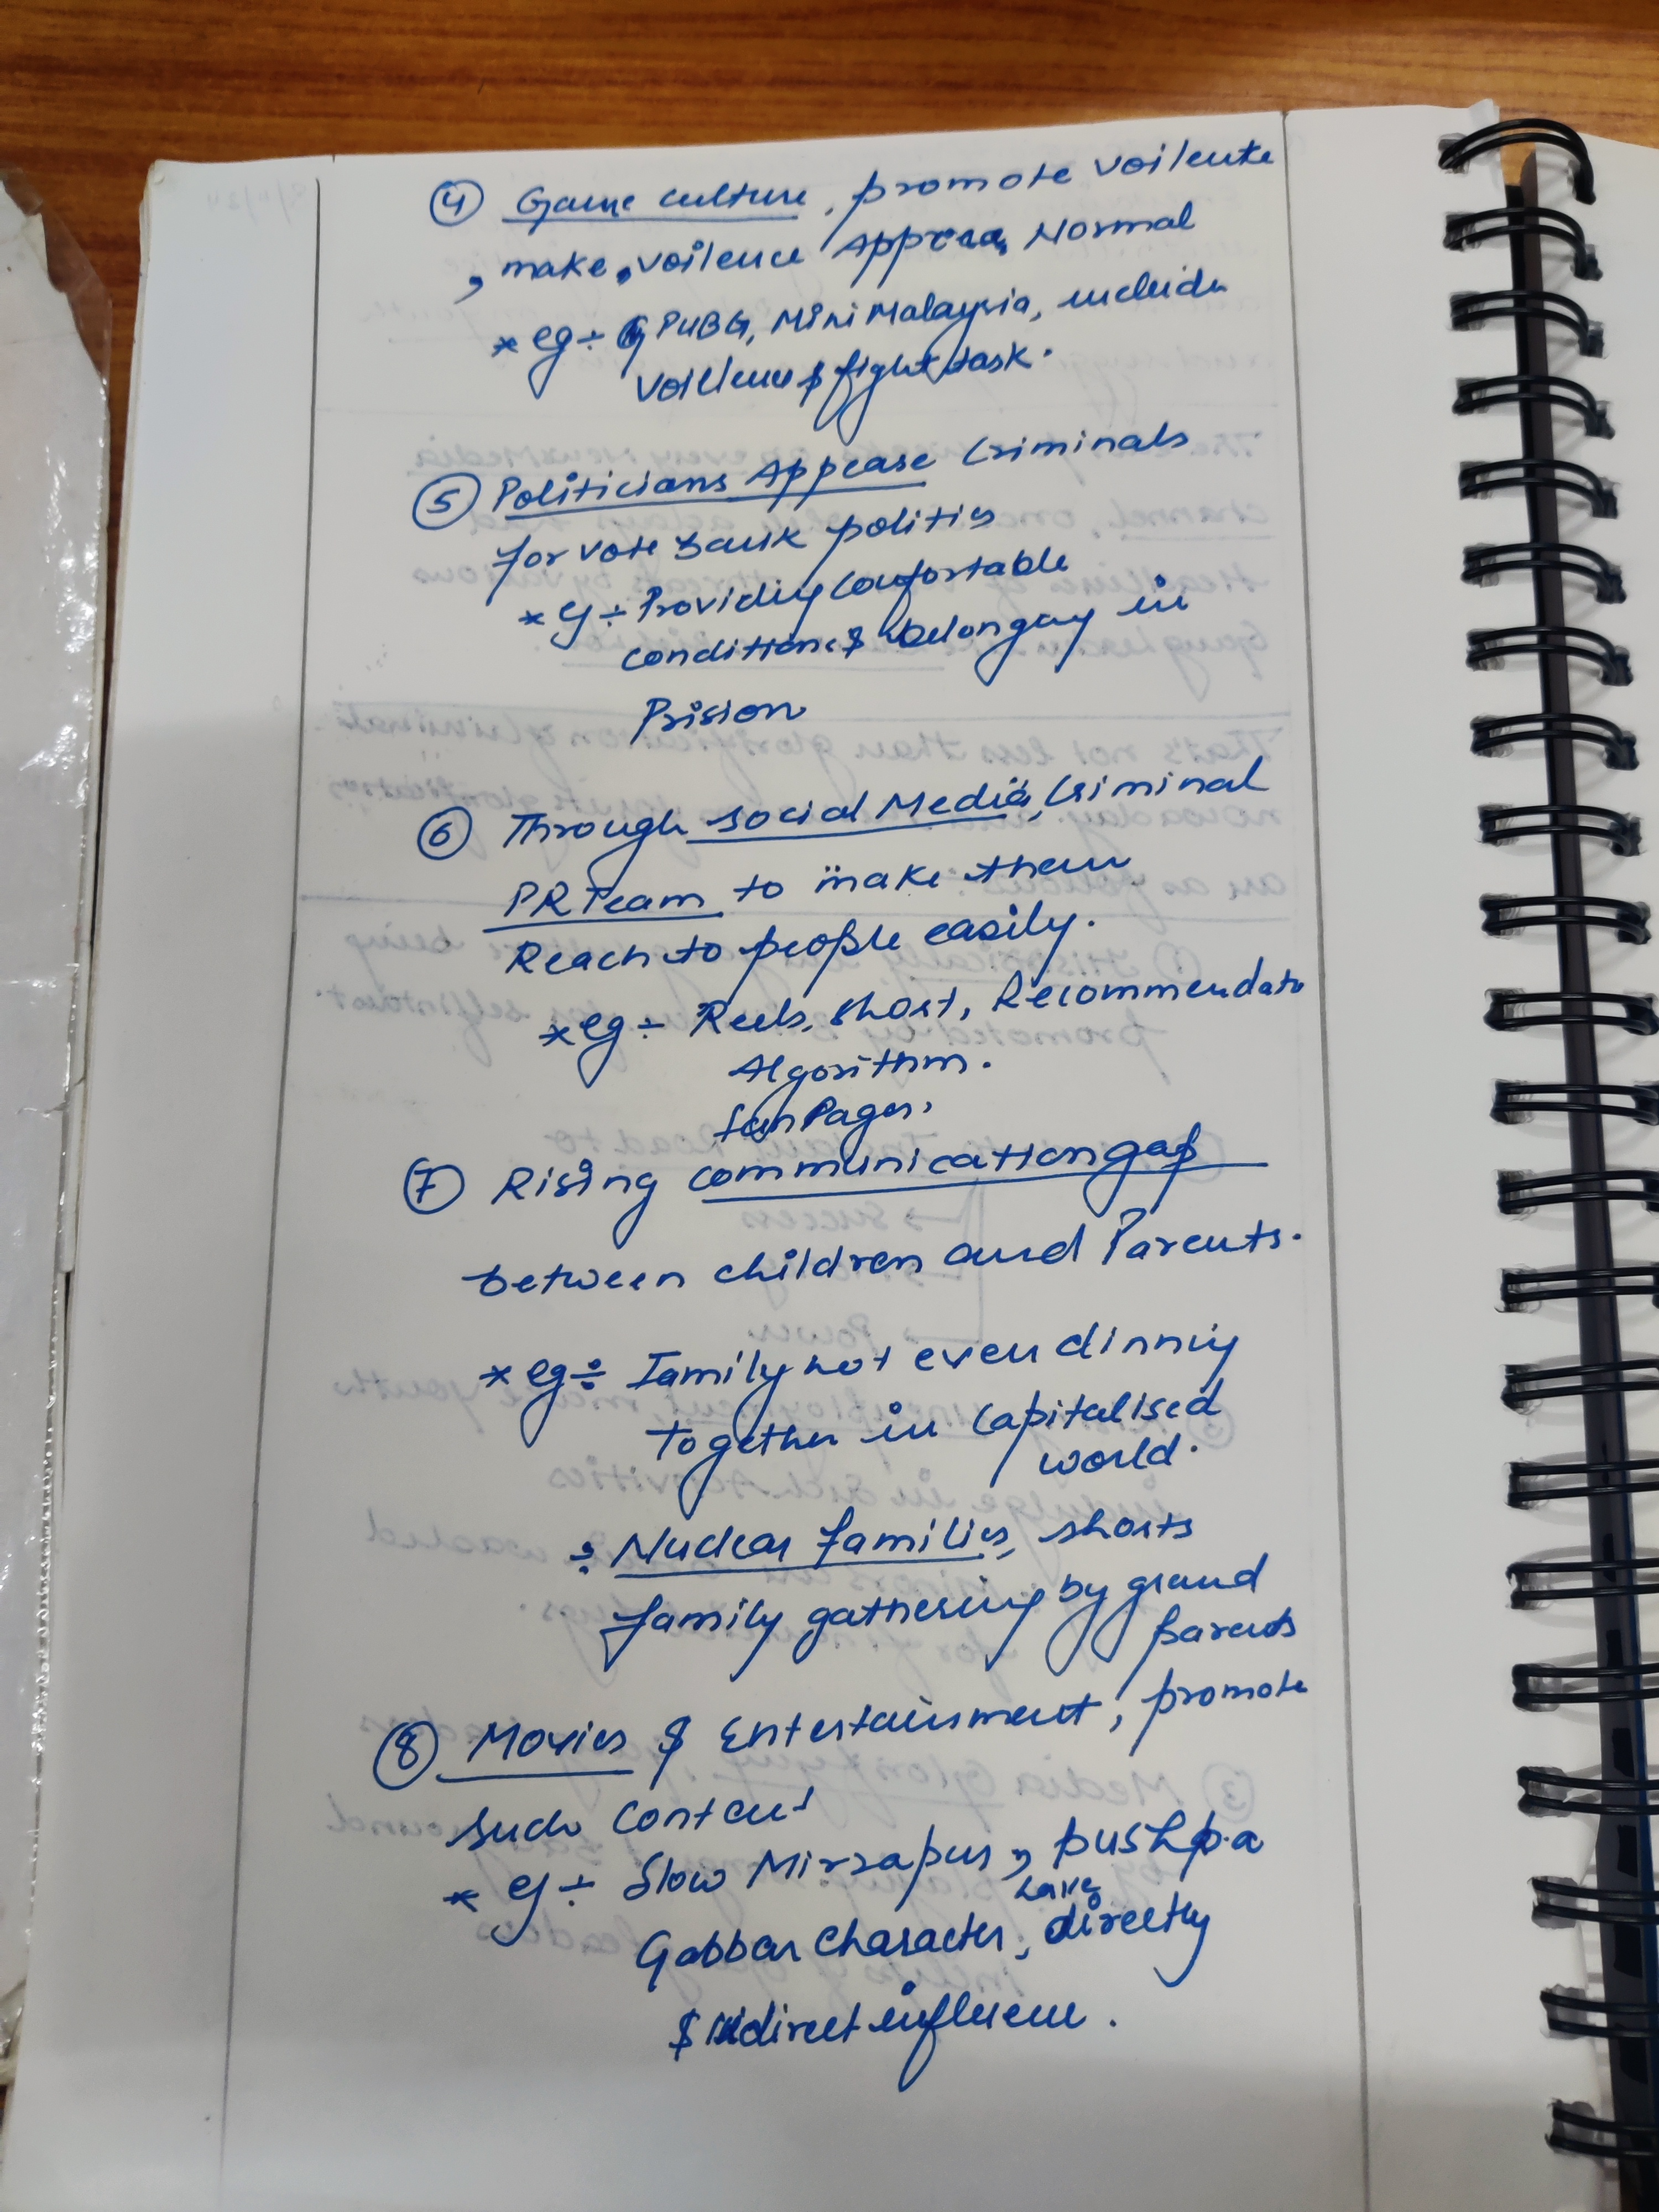 ④ Game culture, promote voilente
, make, voilence Apprea Normal
* eg ÷ PUBG, Mini Malaysia, include
voillence & fight task.
⑤ Politicians Appease Criminals
for vote Bank politics
* eg ÷ Providing Comfortable
conditions & belongay in
Prision
⑥ Through social Media, Criminal
PR Team to make them
Reach to people easily.
* eg ÷ Reels, short, Recommendato
Algorithm.
fan Pages,
⑦ Rising communication gap
between children and Parents.
* eg ÷ Family not even dinning
together in Capitalised
world.
÷ Nuclear families, shorts
family gathering by grand
parents
⑧ Movies & Entertainment, promote
such Content
* eg ÷ Slow Mirzapur, pushpa
have
Gabbar Character, directly
& indirect influence.